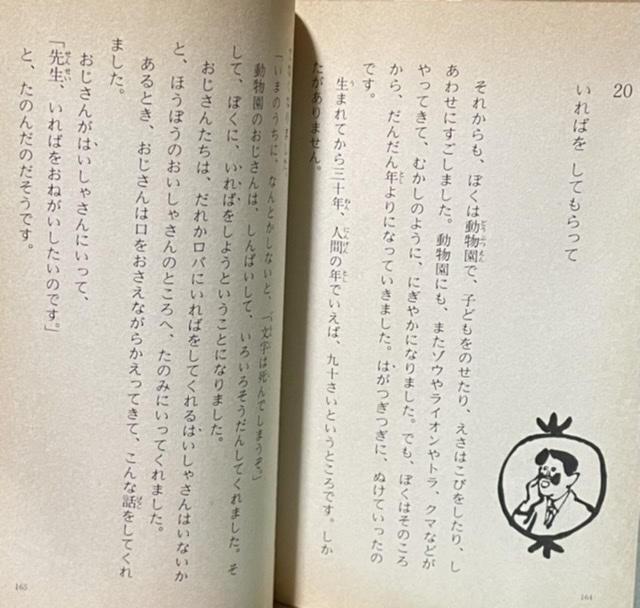 20
いればを してもらって
それからも、ぼくは動物園で、子どもをのせたり、えさはこびをしたり、し
あわせにすごしました。動物園にも、またゾウやライオンやトラ、クマなどが
やってきて、むかしのように、にぎやかになりました。でも、ぼくはそのころ
から、だんだん年よりになっていきました。はがつぎつぎに、ぬけていったの
です。
生まれてから三十年、人間の年でいえば、九十さいというところです。しか
たがありません。
164
「いまのうちに、なんとかしないと、一文字は死んでしまうぞ。」
動物園のおじさんは、しんぱいして、いろいろそうだんしてくれました。そ
して、ぼくに、いればをしようということになりました。
おじさんたちは、だれかロバにいればをしてくれるはいしゃさんはいないか
と、ほうぼうのおいしゃさんのところへ、たのみにいってくれました。
あるとき、おじさんは口をおさえながらかえってきて、こんな話をしてくれ
ました。
おじさんがはいしゃさんにいって、
「先生、いればをおねがいしたいのです。」
と、たのんだのだそうです。
165